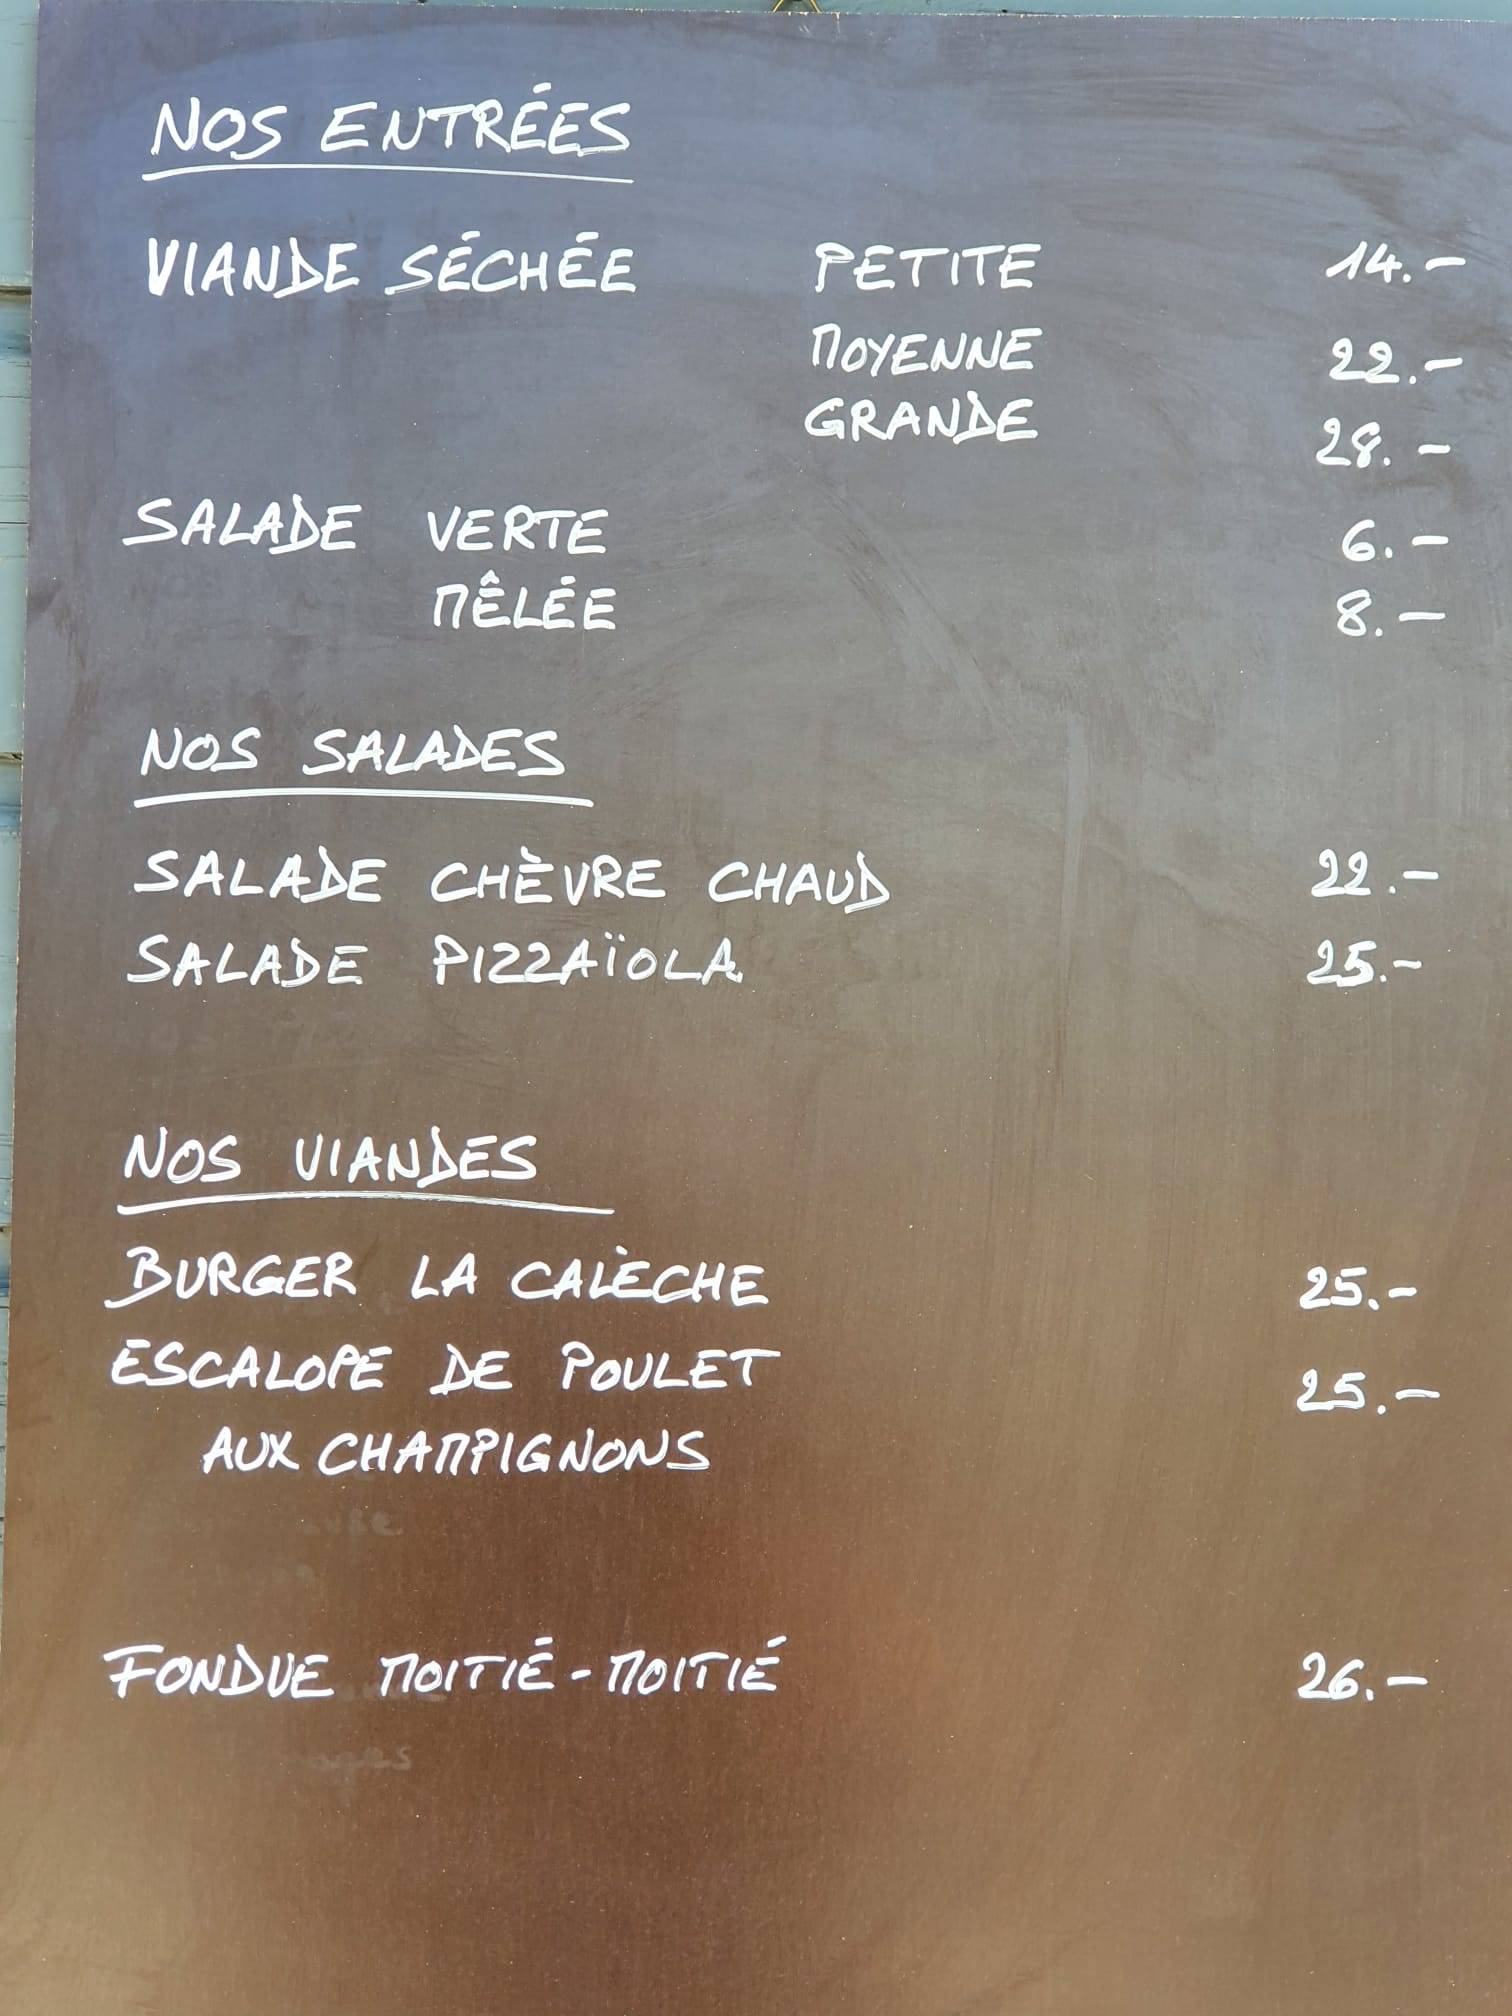 NOS ENTRÉES
VIANDE SÉCHÉE PETITE 14.-
MOYENNE 22.-
GRANDE 28.-
SALADE VERTE 6.-
MÊLÉE 8.-
NOS SALADES
SALADE CHÈVRE CHAUD 22.-
SALADE PIZZAÏOLA 25.-
NOS VIANDES
BURGER LA CALÈCHE 25.-
ESCALOPE DE POULET 25.-
AUX CHAMPIGNONS
FONDUE MOITIÉ-MOITIÉ 26.-